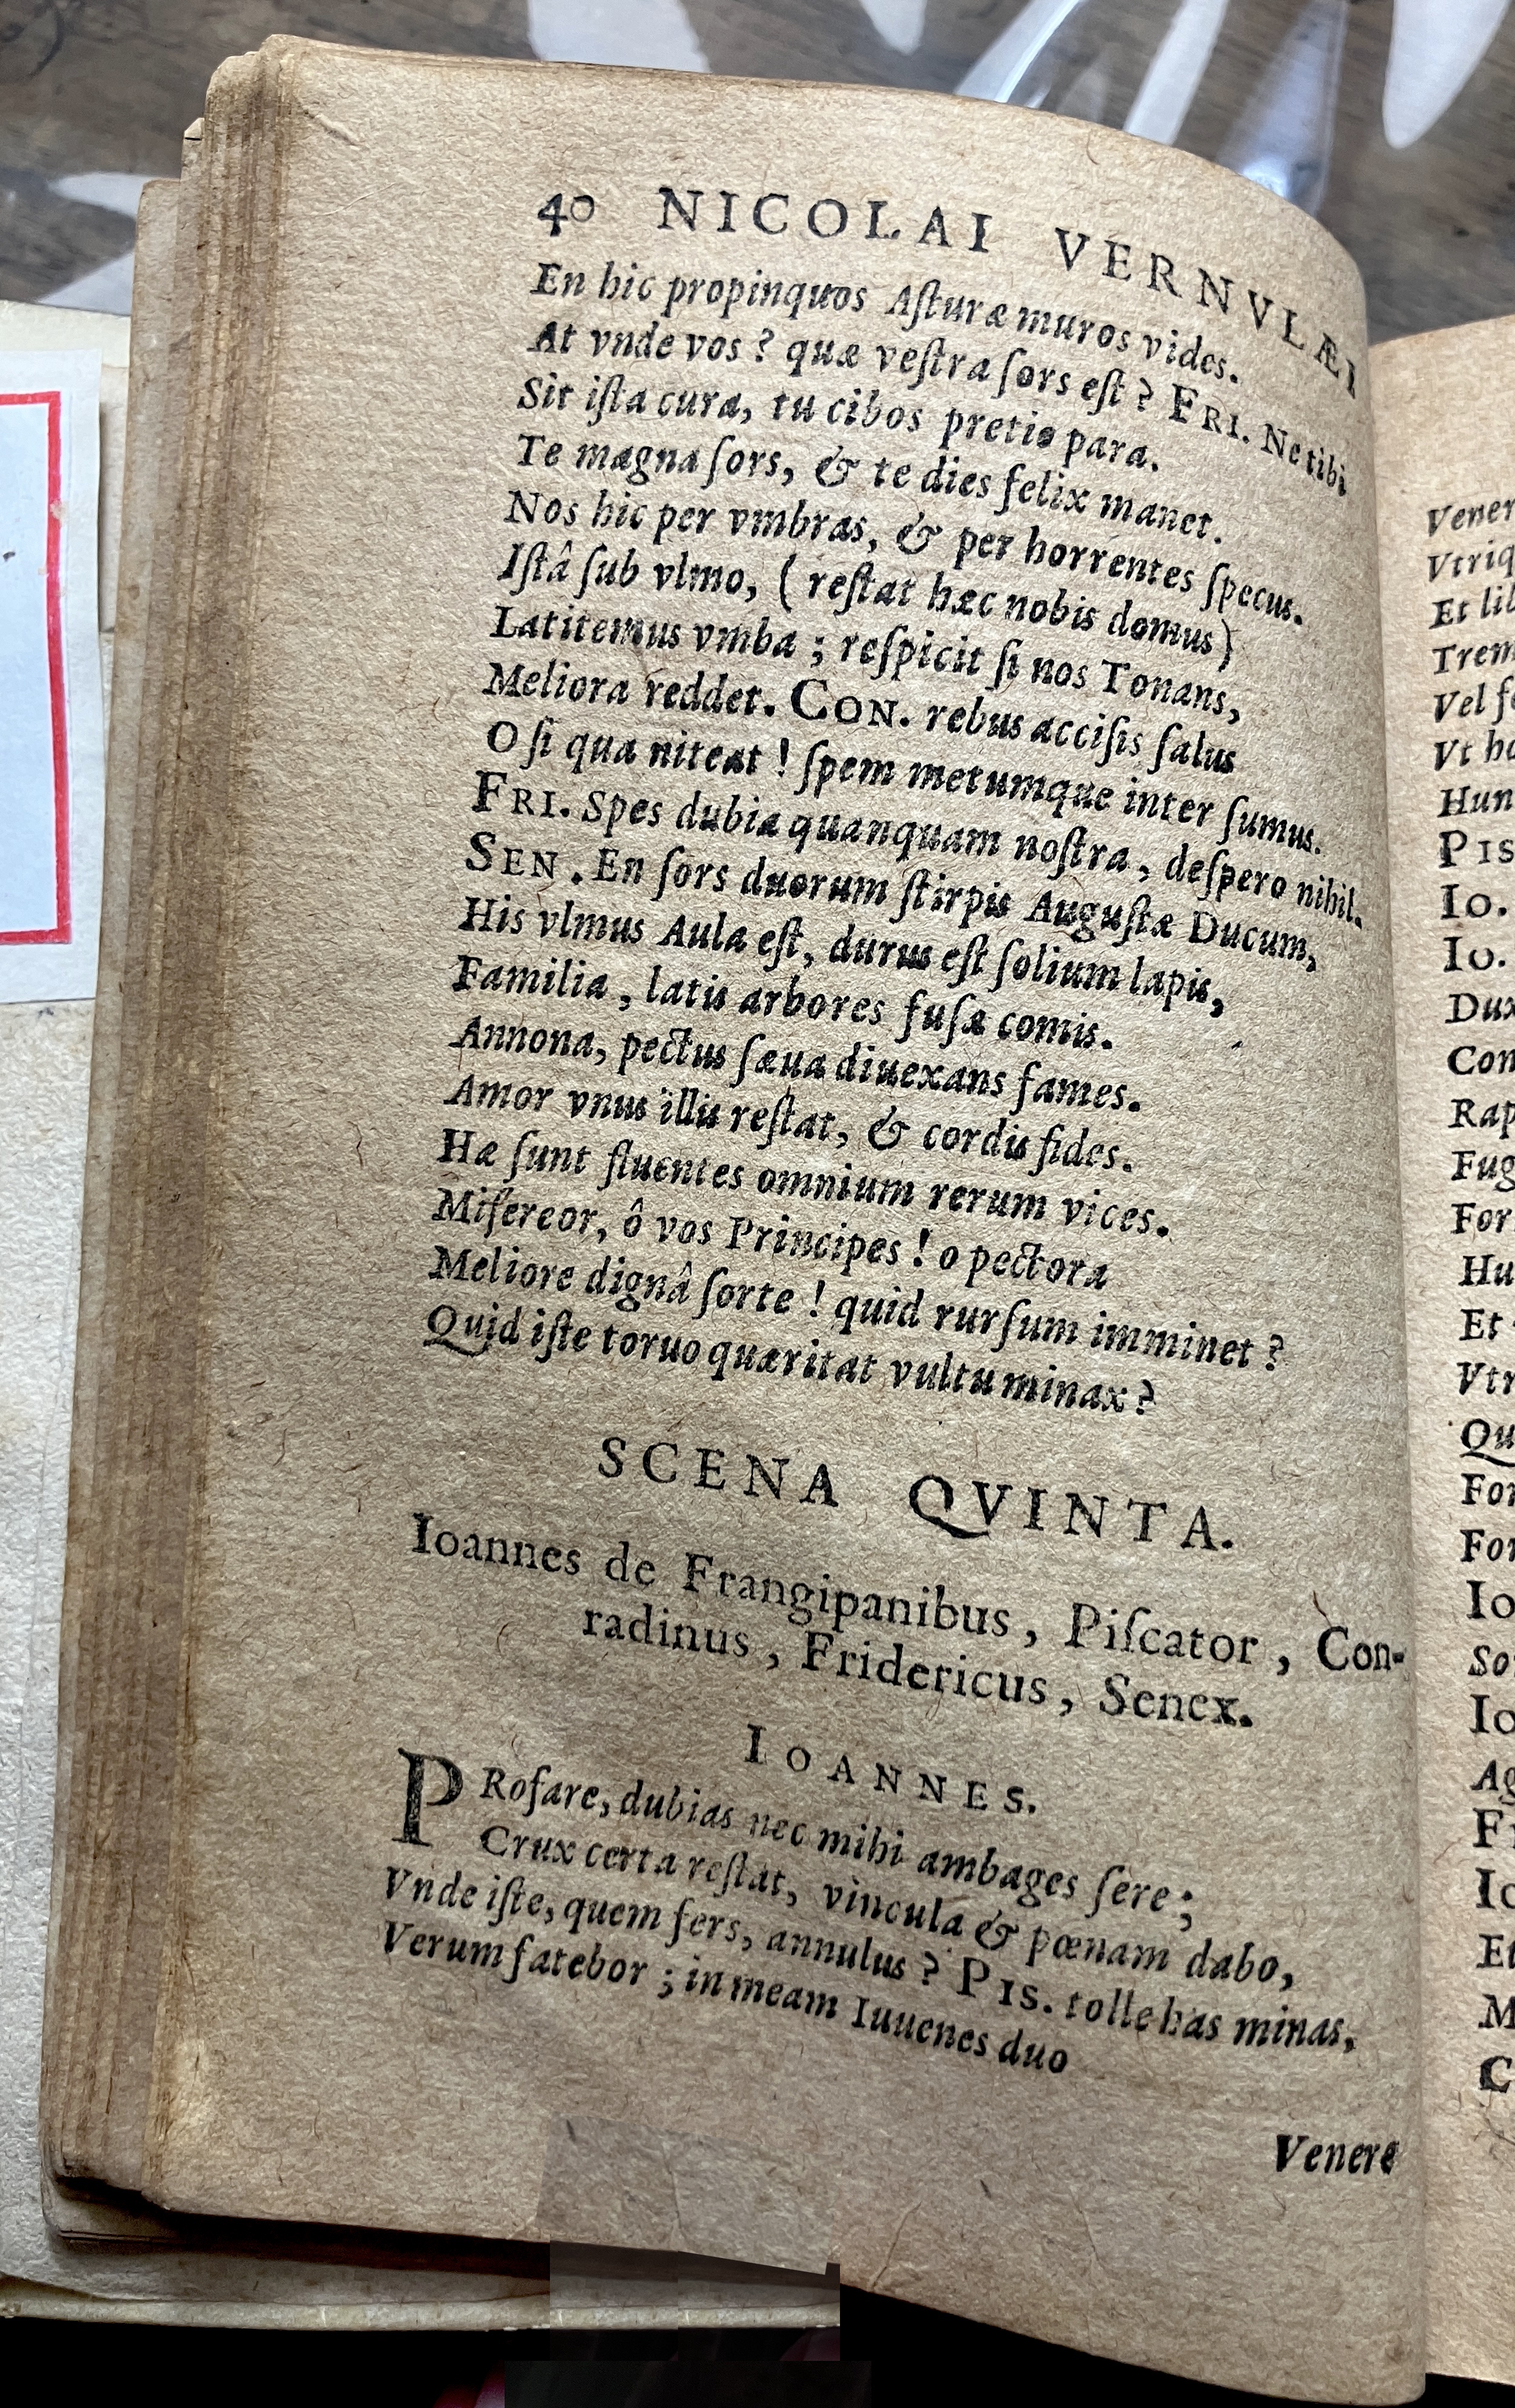 40 NICOLAI VERNVLÆI
En hic propinquos Aſturæ muros vides.
At vnde vos? quæ veſtra ſors eſt? FRI. Ne tibi
Sit iſta cura, tu cibos pretio para.
Te magna ſors, & te dies felix manet.
Nos hic per vmbras, & per horrentes ſpecus.
Iſtâ ſub vlmo, (reſtat hæc nobis domus)
Latitemus vmba; reſpicit ſi nos Tonans,
Meliora reddet. CON. rebus acciſis ſalus
O ſi qua niteat! ſpem metumque inter ſumus.
FRI. Spes dubia quanquam noſtra, deſpero nihil.
SEN. En ſors duorum ſtirpis Auguſtæ Ducum,
His vlmus Aula eſt, durus eſt ſolium lapis,
Familia, latis arbores fuſæ comis.
Annona, pectus ſæua diuexans fames.
Amor vnus illis reſtat, & cordis fides.
Hæ ſunt fluentes omnium rerum vices.
Miſereor, ô vos Principes! o pectora
Meliore dignâ ſorte! quid rurſum imminet?
Quid iſte toruo quæritat vultu minax?
SCENA QVINTA.
Ioannes de Frangipanibus, Piſcator, Con-
radinus, Fridericus, Senex.
IOANNES.
PRofare, dubias nec mihi ambages ſere;
Crux certa reſtat, vincula & pœnam dabo,
Vnde iſte, quem fers, annulus? PIS. tolle has minas,
Verum fatebor; in meam Iuuenes duo
Venere
Vener
Vtriq
Et lib
Trem
Vel fe
Vt ho
Hun
PIS
Io.
Io.
Dux
Con
Rap
Fug
For
Hu
Et
Vtr
Qu
For
For
Io
So
Io
Ag
Fr
Io
Et
M
C